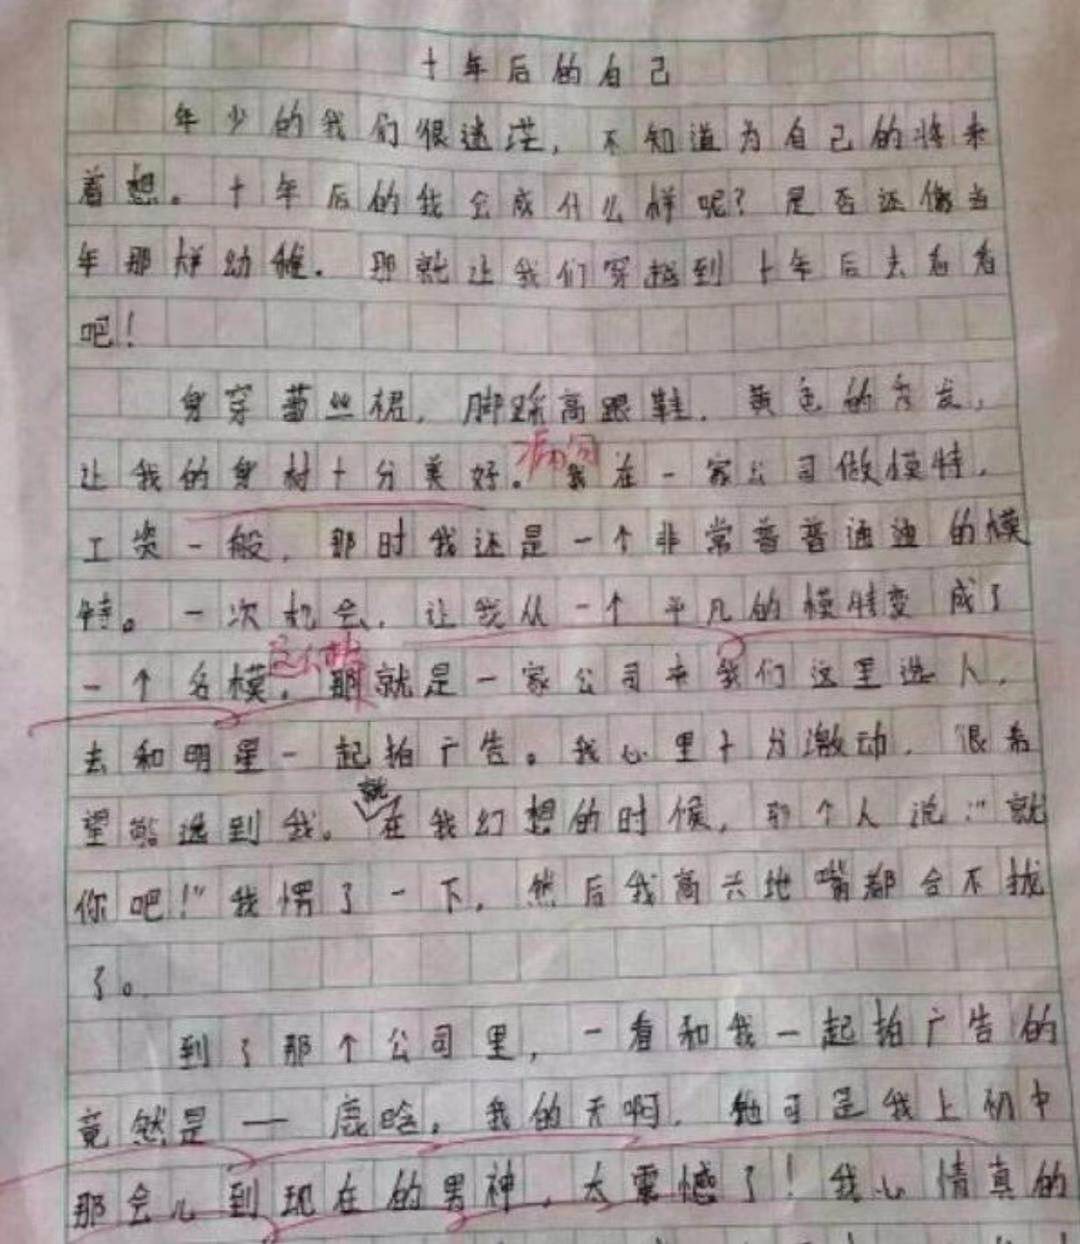 十年后的自己
年少的我们很迷茫，不知道为自己的将来
着想。十年后的我会成什么样呢？是否还像当
年那样幼稚。那就让我们穿越到十年后去看看
吧！
身穿蕾丝裙，脚踩高跟鞋，黄色的秀发，
让我的身材十分美好。病句我在一家公司做模特，
工资一般，那时我还是一个非常普普通通的模
特。一次机会，让我从一个平凡的模特变成了
一个名模。那就是一家公司来我们这里选人，
去和明星一起拍广告。我心里十分激动，很希
望能选到我。就在我幻想的时候，那个人说：“就
你吧！”我愣了一下，然后我高兴地嘴都合不拢
了。
到了那个公司里，一看和我一起拍广告的
竟然是——鹿晗。我的天啊，他可是我上初中
那会儿到现在的男神，太震憾了！我心情真的